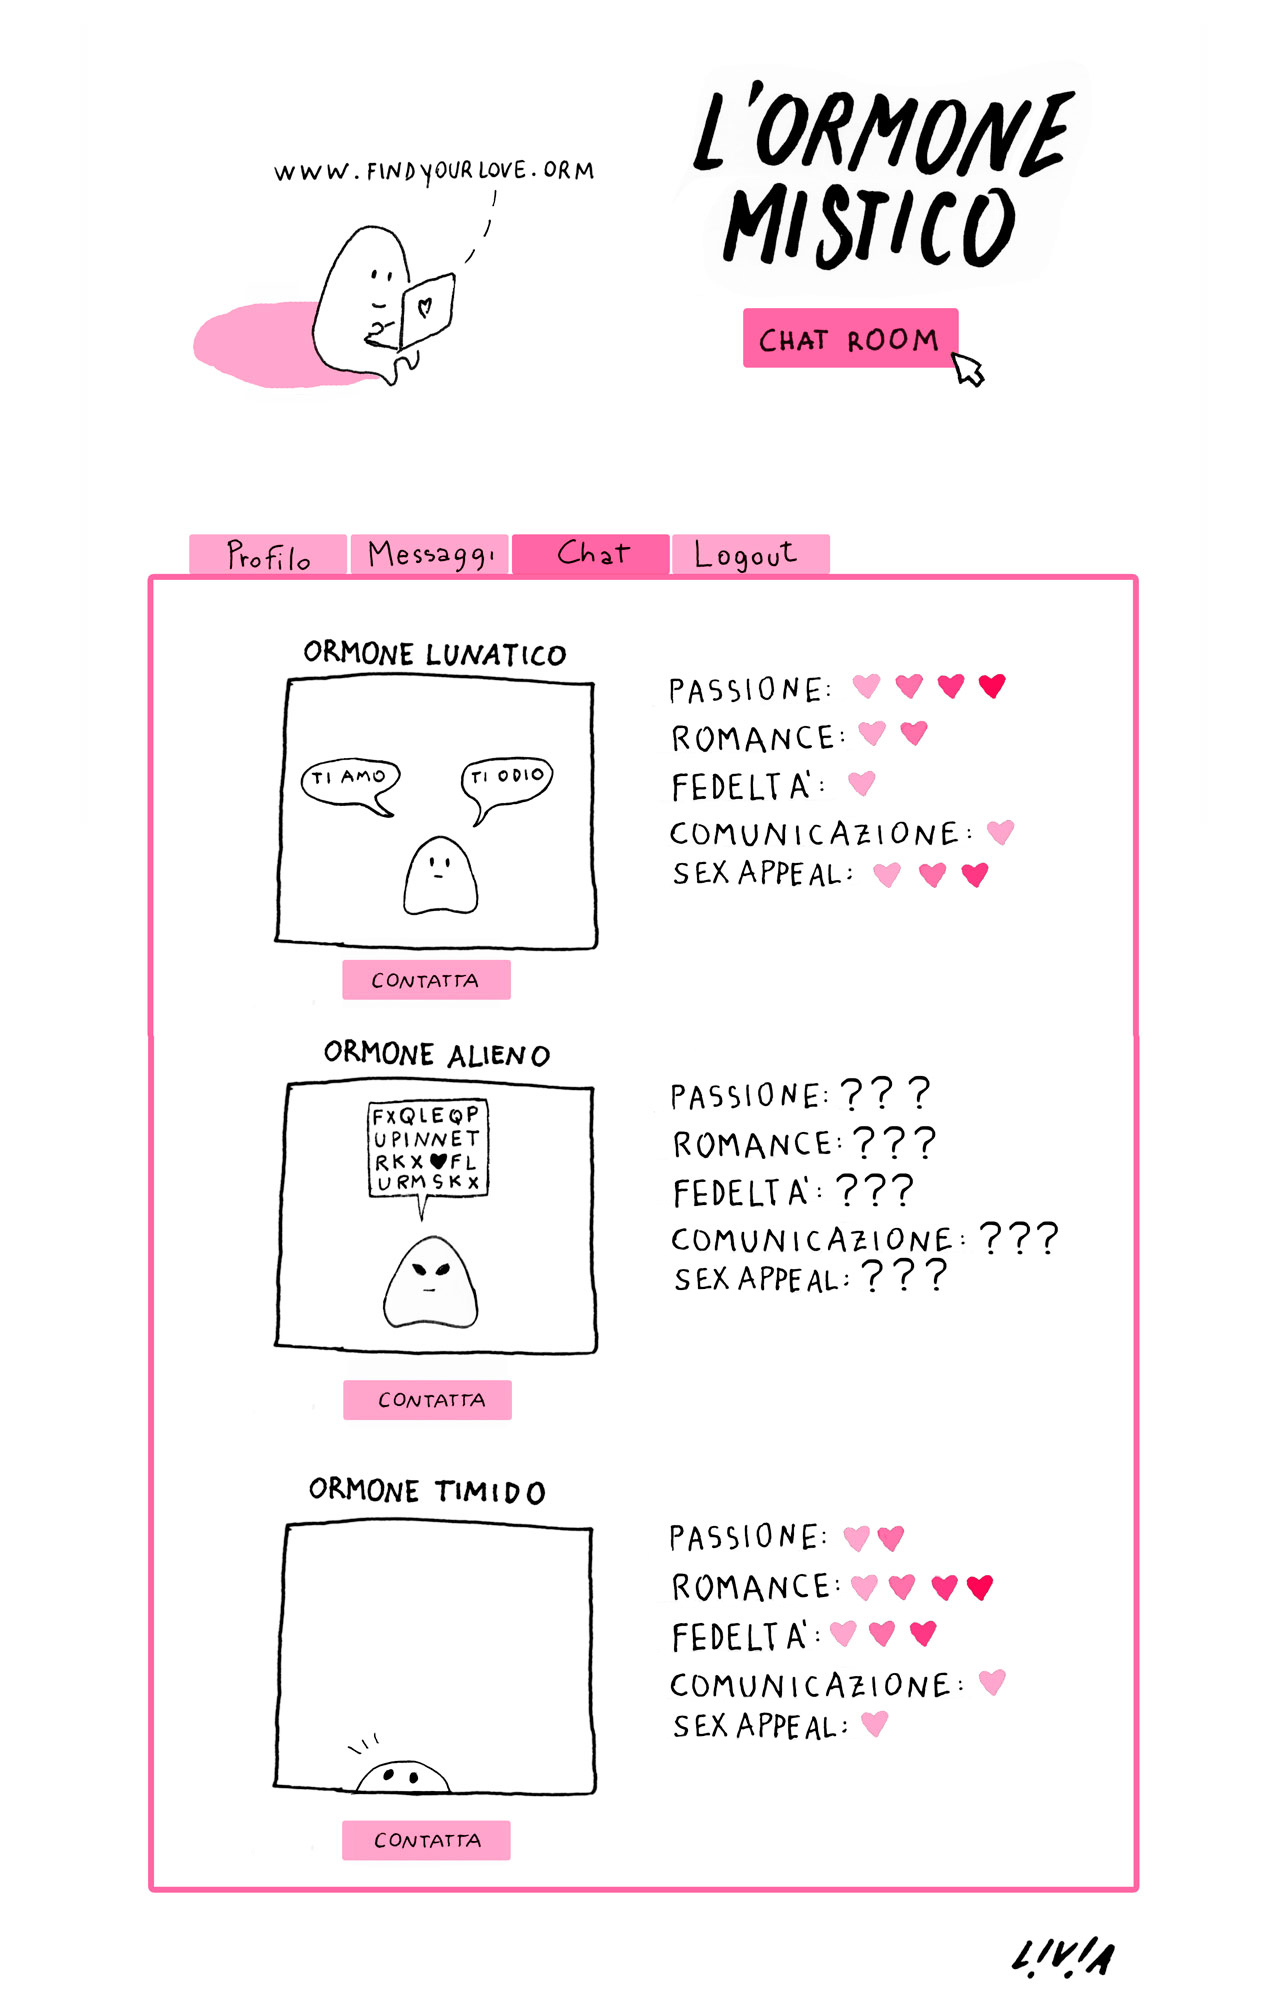 WWW.FINDYOURLOVE.ORM
L'ORMONE
MISTICO
CHAT ROOM
Profilo
Messaggi
Chat
Logout
ORMONE LUNATICO
TI AMO
TI ODIO
PASSIONE:
ROMANCE:
FEDELTA':
COMUNICAZIONE:
SEX APPEAL:
CONTATTA
ORMONE ALIENO
FXQLEQP
UPINNET
RKX♥FL
URMSKX
PASSIONE: ???
ROMANCE: ???
FEDELTA': ???
COMUNICAZIONE: ???
SEX APPEAL: ???
CONTATTA
ORMONE TIMIDO
PASSIONE:
ROMANCE:
FEDELTA':
COMUNICAZIONE:
SEX APPEAL:
CONTATTA
LIVIA